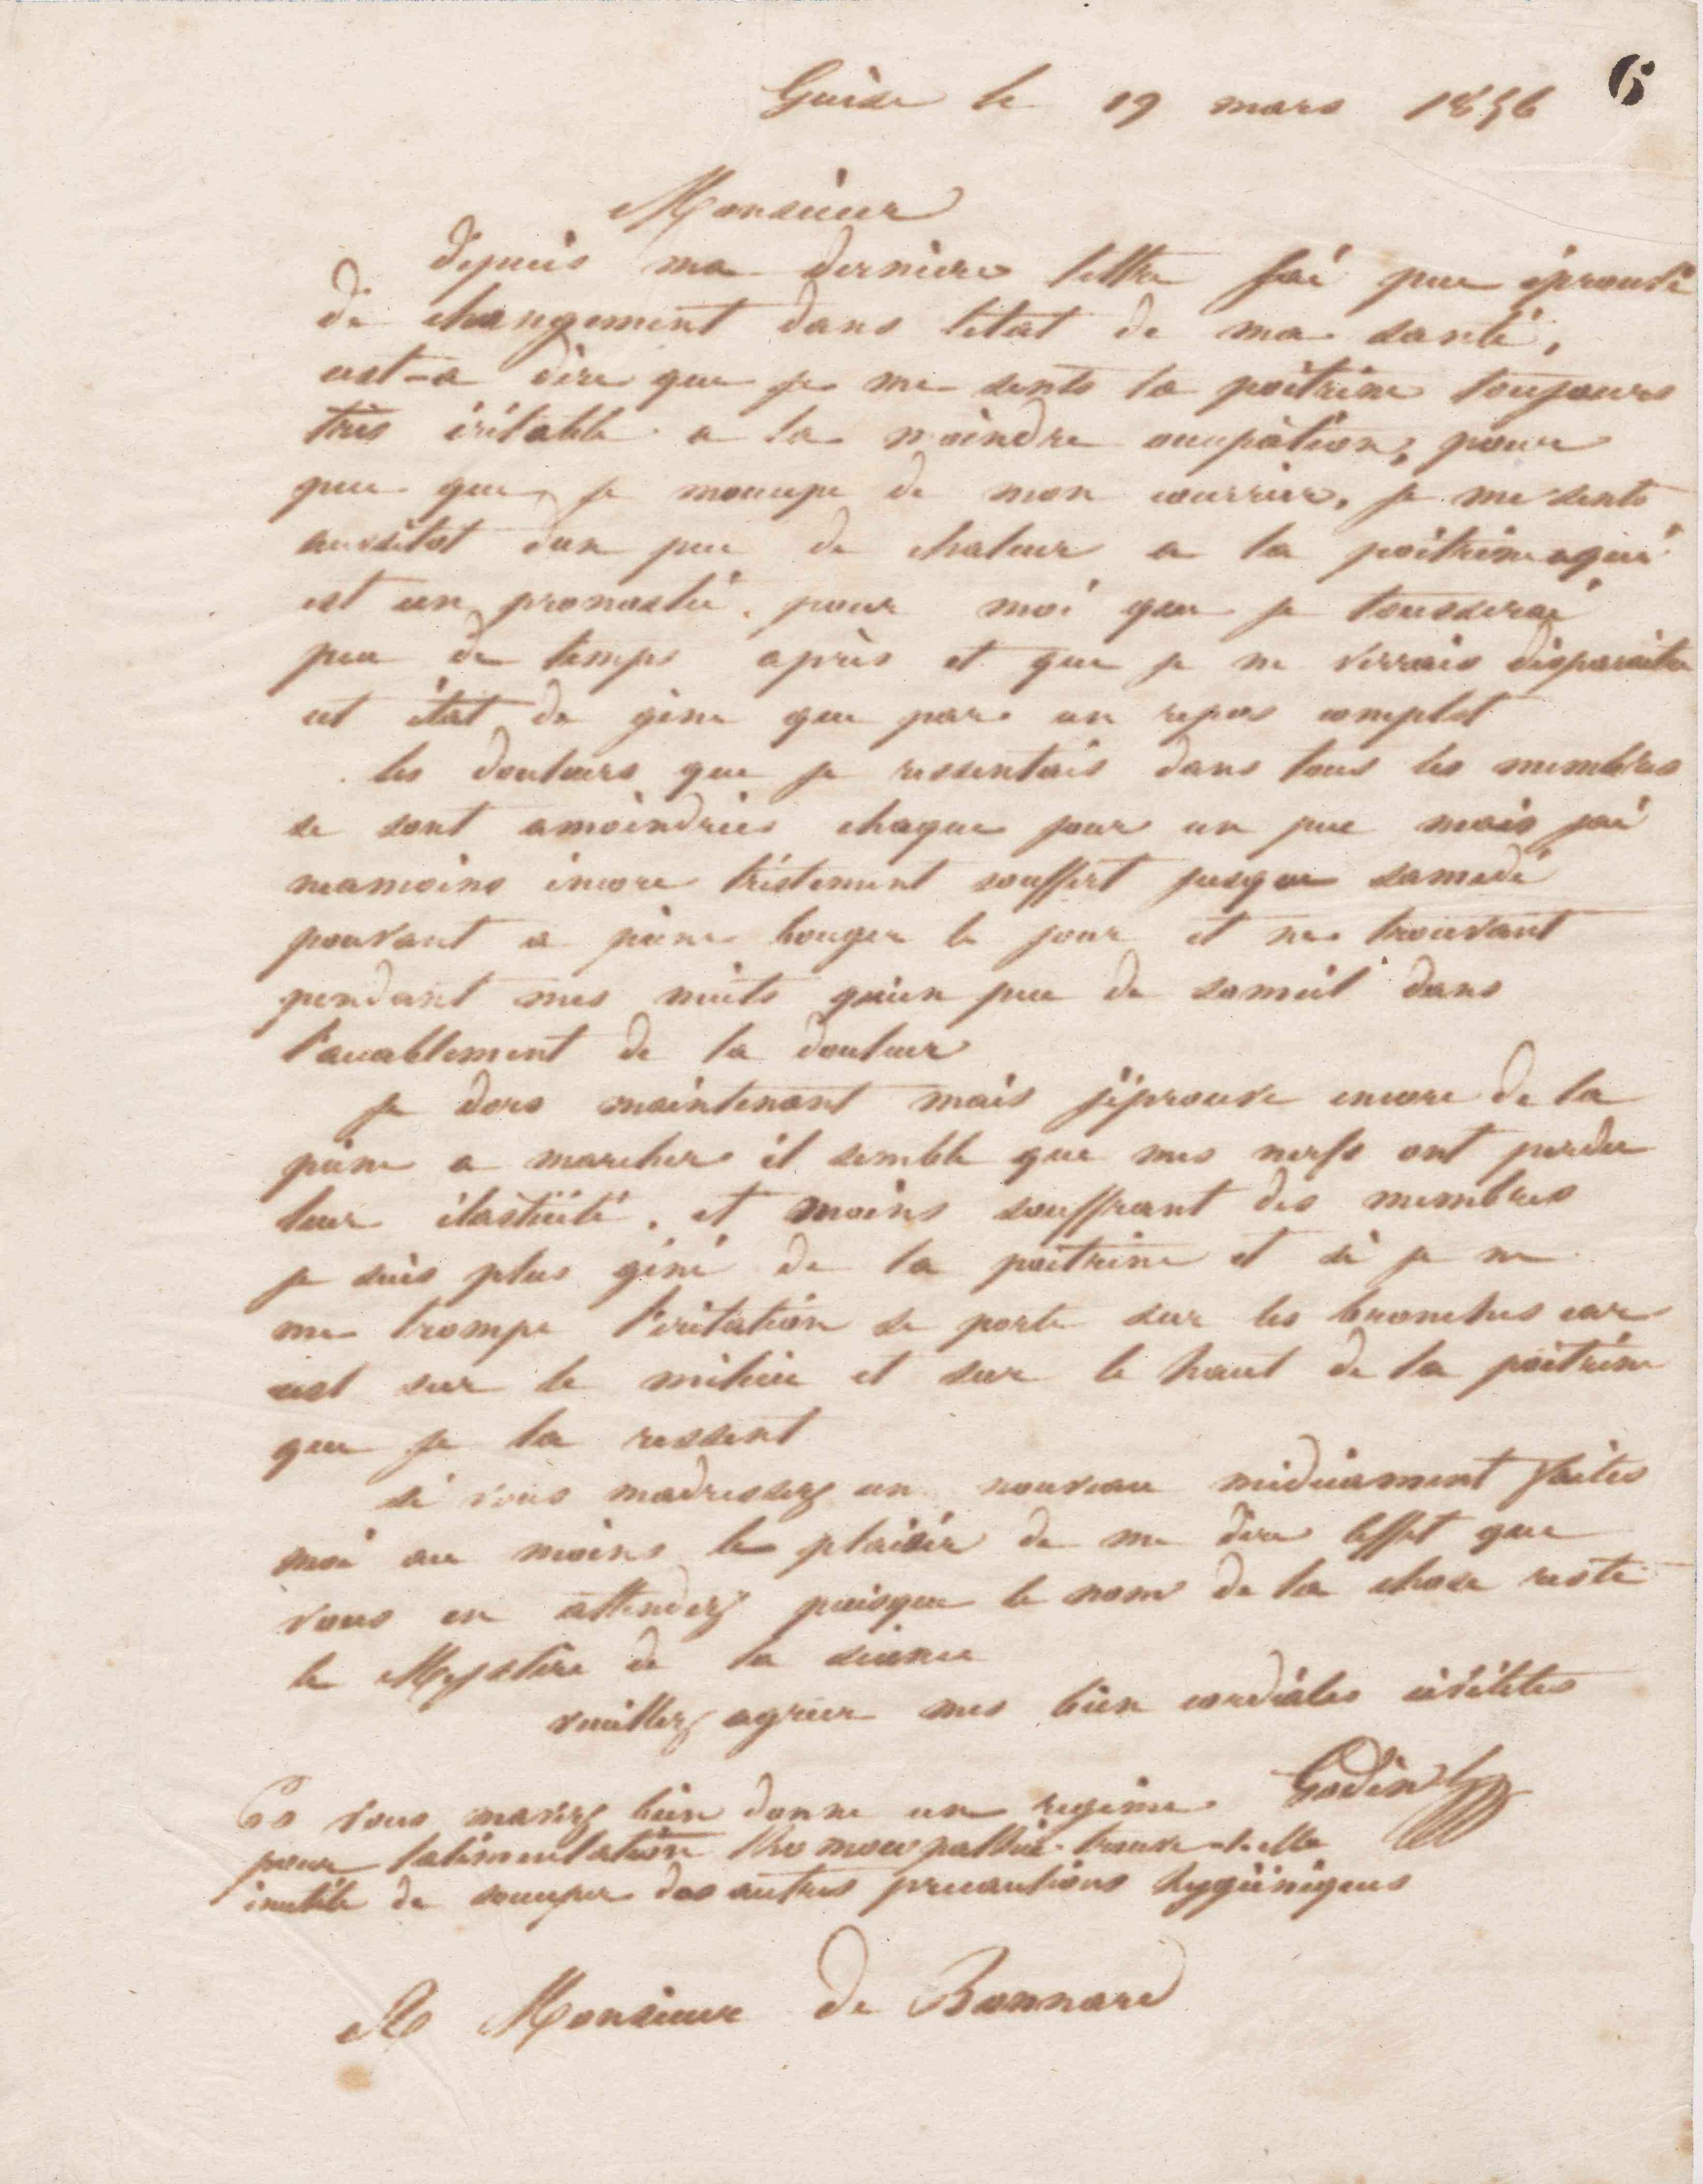 6
Guise le 19 mars 1856
Monsieur
depuis ma dernière lettre jai peu éprouvé
de changement dans letat de ma santé,
cest-a dire que je me sents la poitrine toujours
très iritable a la moindre occupation, pour
peu que je moccupe de mon courrier, je me sents
aussitot dun peu de chaleur a la poitrine qui
est un pronostic pour moi que je tousserai
peu de temps après et que je ne verrais disparaitre
cet état de gêne que par un repos complet
les douleurs que je ressentais dans tous les membres
se sont amoindries chaque jour un peu mais jai
neamoins encore tristement souffert jusque samedi
pouvant a peine bouger le jour et ne trouvant
pendant mes nuits quun peu de someil dans
l'accablement de la douleur
je dors maintenant mais j'éprouve encore de la
peine a marcher il semble que mes nerfs ont perdu
leur élasticité. et moins souffrant des membres
je suis plus géné de la poitrine et si je ne
me trompe l'iritation se porte sur les bronches car
cest sur le milieu et sur le haut de la poitrine
que je la ressent
si vous madressez un nouveau médicament faites
moi au moins le plaisir de me dire leffet que
vous en attendez puisque le nom de la chose reste
le Mystère de la science
veuillez agréer mes bien cordiales civilités
Godin
Ps vous mavez bien donne un regime
pour lalimentation lhomoeopathie trouve-t-elle
inutile de soccuper des autres precautions hygièniques
A Monsieur de Bonnard